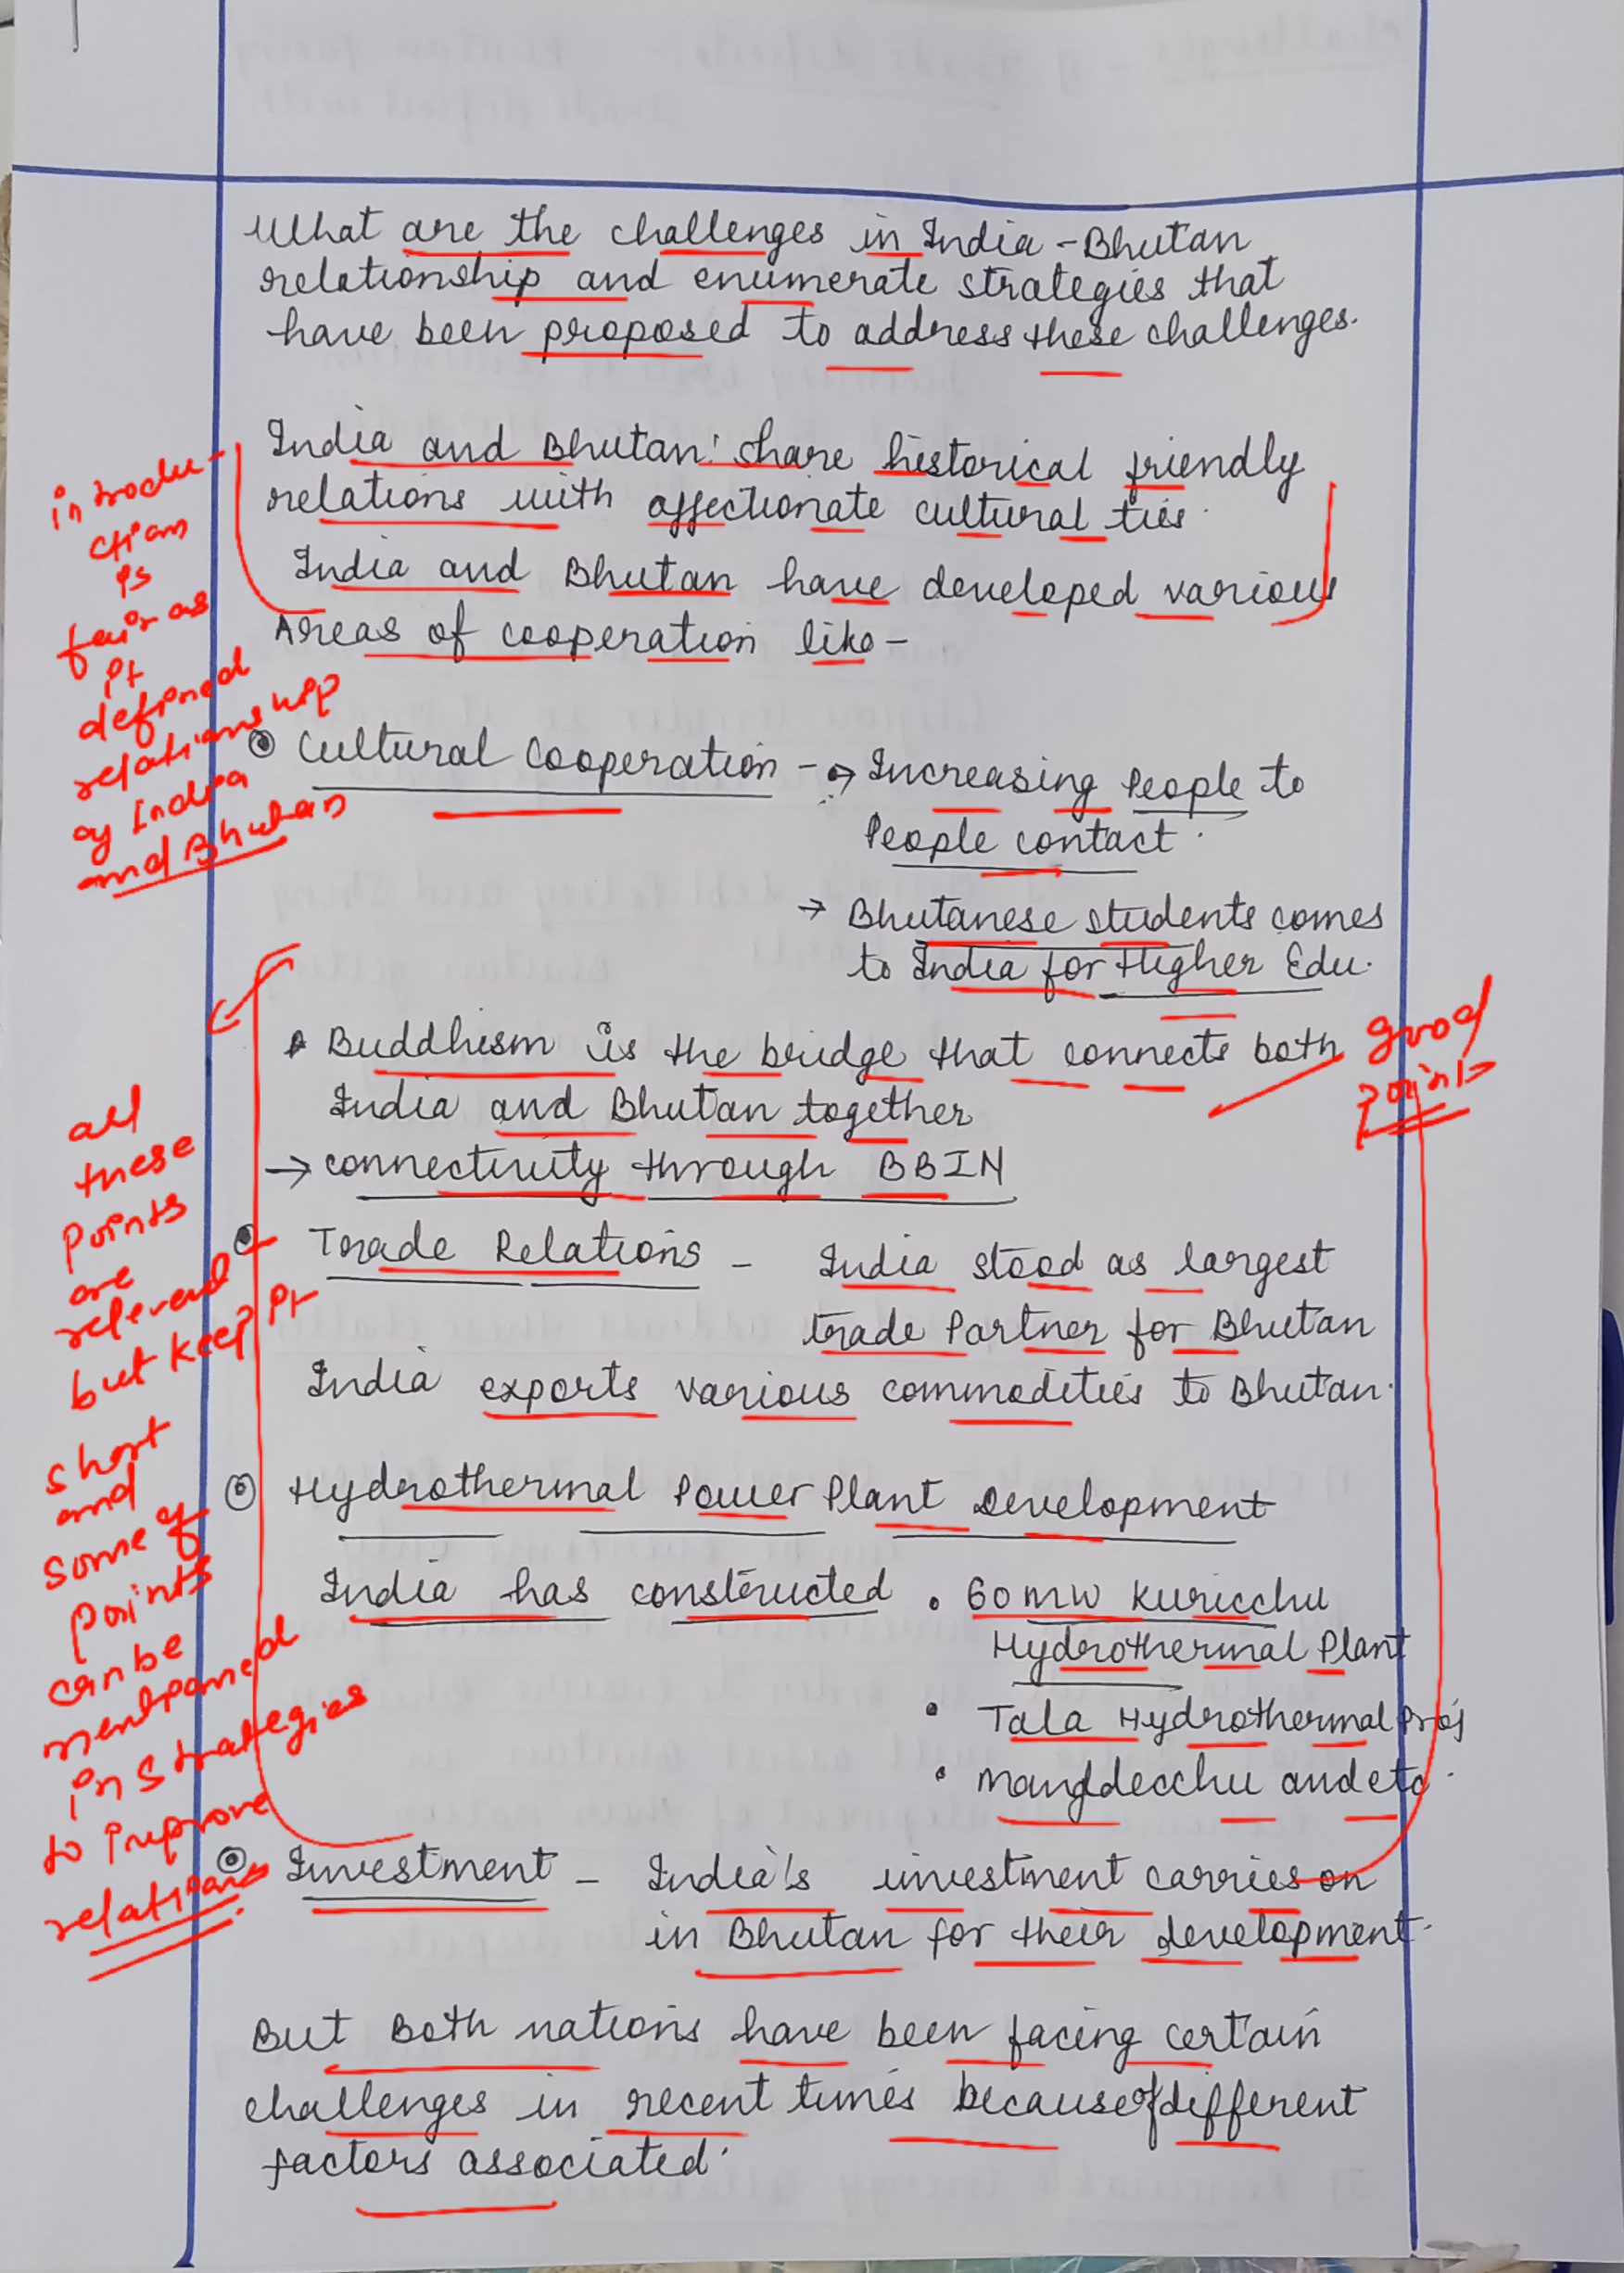 What are the challenges in India - Bhutan
relationship and enumerate strategies that
have been proposed to address these challenges.
India and Bhutan share historical friendly
relations with affectionate cultural ties.
India and Bhutan have developed various
Areas of cooperation like -
introdu-
ction
is
fair as
it
defined
relationship
of India
and Bhutan
Cultural Cooperation - → Increasing People to
People contact.
→ Bhutanese students comes
to India for Higher Edu.
Buddhism is the bridge that connects both
India and Bhutan together
→ connectivity through BBIN
good
points
Trade Relations - India stood as largest
trade Partner for Bhutan
India exports various commodities to Bhutan.
Hydrothermal Power Plant Development
India has constructed • 60 MW Kuricchu
Hydrothermal Plant
• Tala Hydrothermal Proj
• Mangdecchu and etc.
all
these
points
are
relevent
but keep it
short
and
some of
points
can be
mentioned
in strategies
to improve
relations
Investment - India's investment carries on
in Bhutan for their development.
But Both nations have been facing certain
challenges in recent times because of different
factors associated.